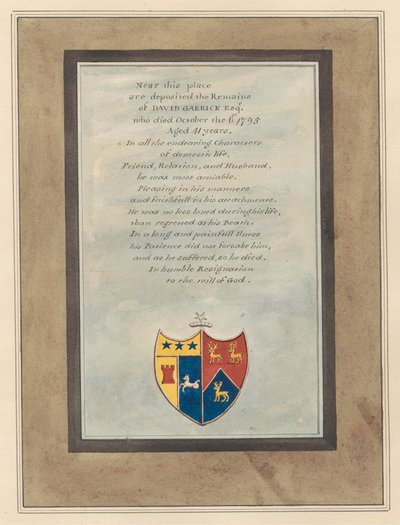 Near this place
are deposited the Remains
of DAVID GARRICK Esqr.
who died October the 1795
Aged 41 years.
In all the endearing Characters
of domestic life,
Friend, Relation, and Husband,
he was most amiable.
Pleasing in his manners
and faithfull in his attachments.
He was no less loved during his life,
than regretted at his Death.
In a long and painfull Illness
his Patience did not forsake him,
and as he suffered, so he died.
In humble Resignation
to the will of God.